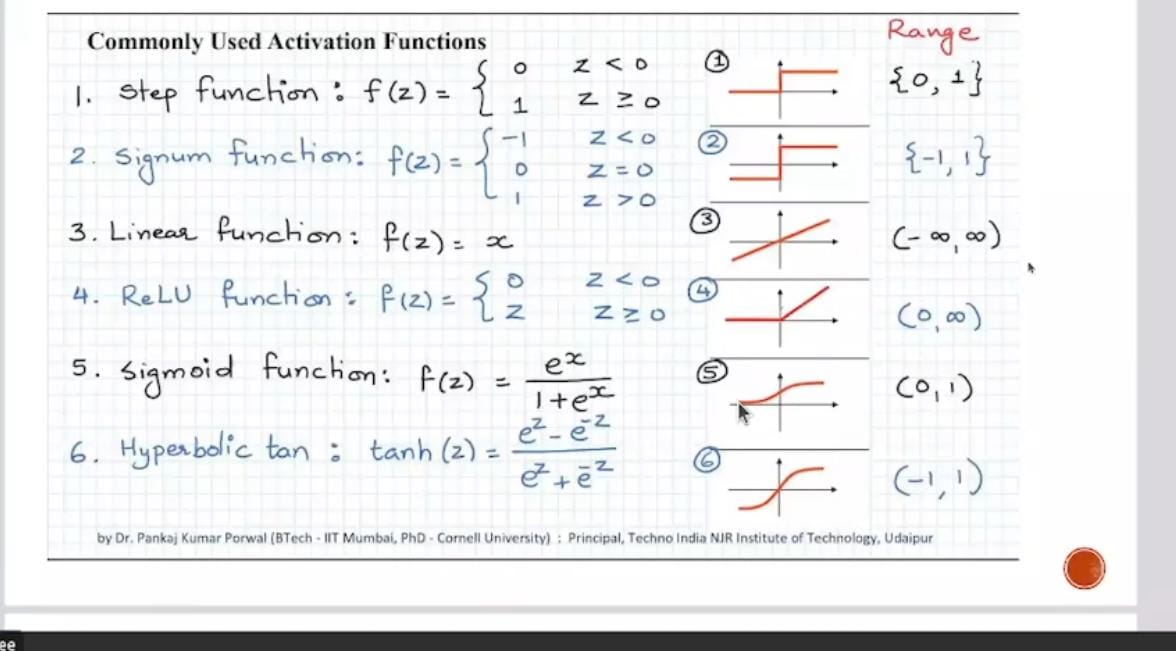 Commonly Used Activation Functions
Range
1. Step function : f(z) = { 0 z < 0
1 z ≥ 0
① {0, 1}
2. Signum function: f(z) = { -1 z<0
0 z = 0
1 z >0
② {-1, 1}
3. Linear function: f(z) = x
③ (-∞, ∞)
4. ReLU function : f(z) = { 0 z < 0
z z ≥ 0
④ (0, ∞)
5. Sigmoid function: f(z) = e^x / 1+e^x
⑤ (0, 1)
6. Hyperbolic tan : tanh (z) = e^z - e^-z / e^z + e^-z
⑥ (-1, 1)
by Dr. Pankaj Kumar Porwal (BTech - IIT Mumbai, PhD - Cornell University) : Principal, Techno India NJR Institute of Technology, Udaipur
ee